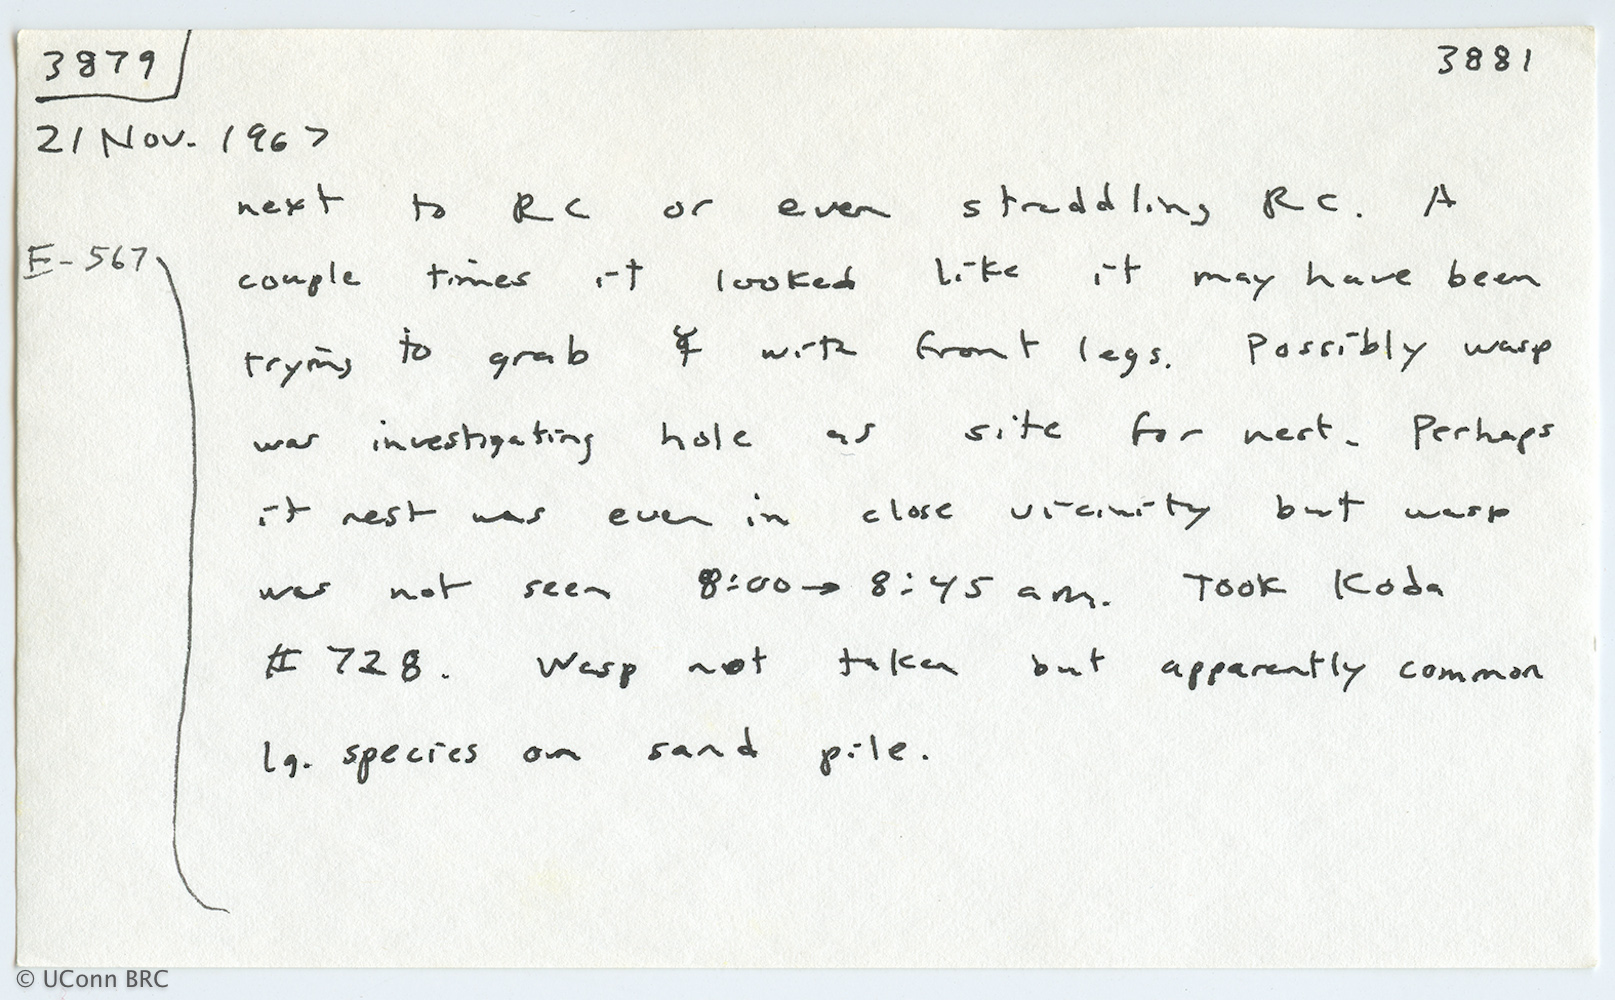 3879
3881
21 Nov. 1967
next to RC or even straddling RC. A
E-567
couple times it looked like it may have been
trying to grab with front legs. Possibly wasp
was investigating hole as site for nest. Perhaps
it nest was even in close vicinity but wasp
was not seen 8:00→8:45 am. Took Koda
# 728. Wasp not taken but apparently common
lg. species on sand pile.
© UConn BRC